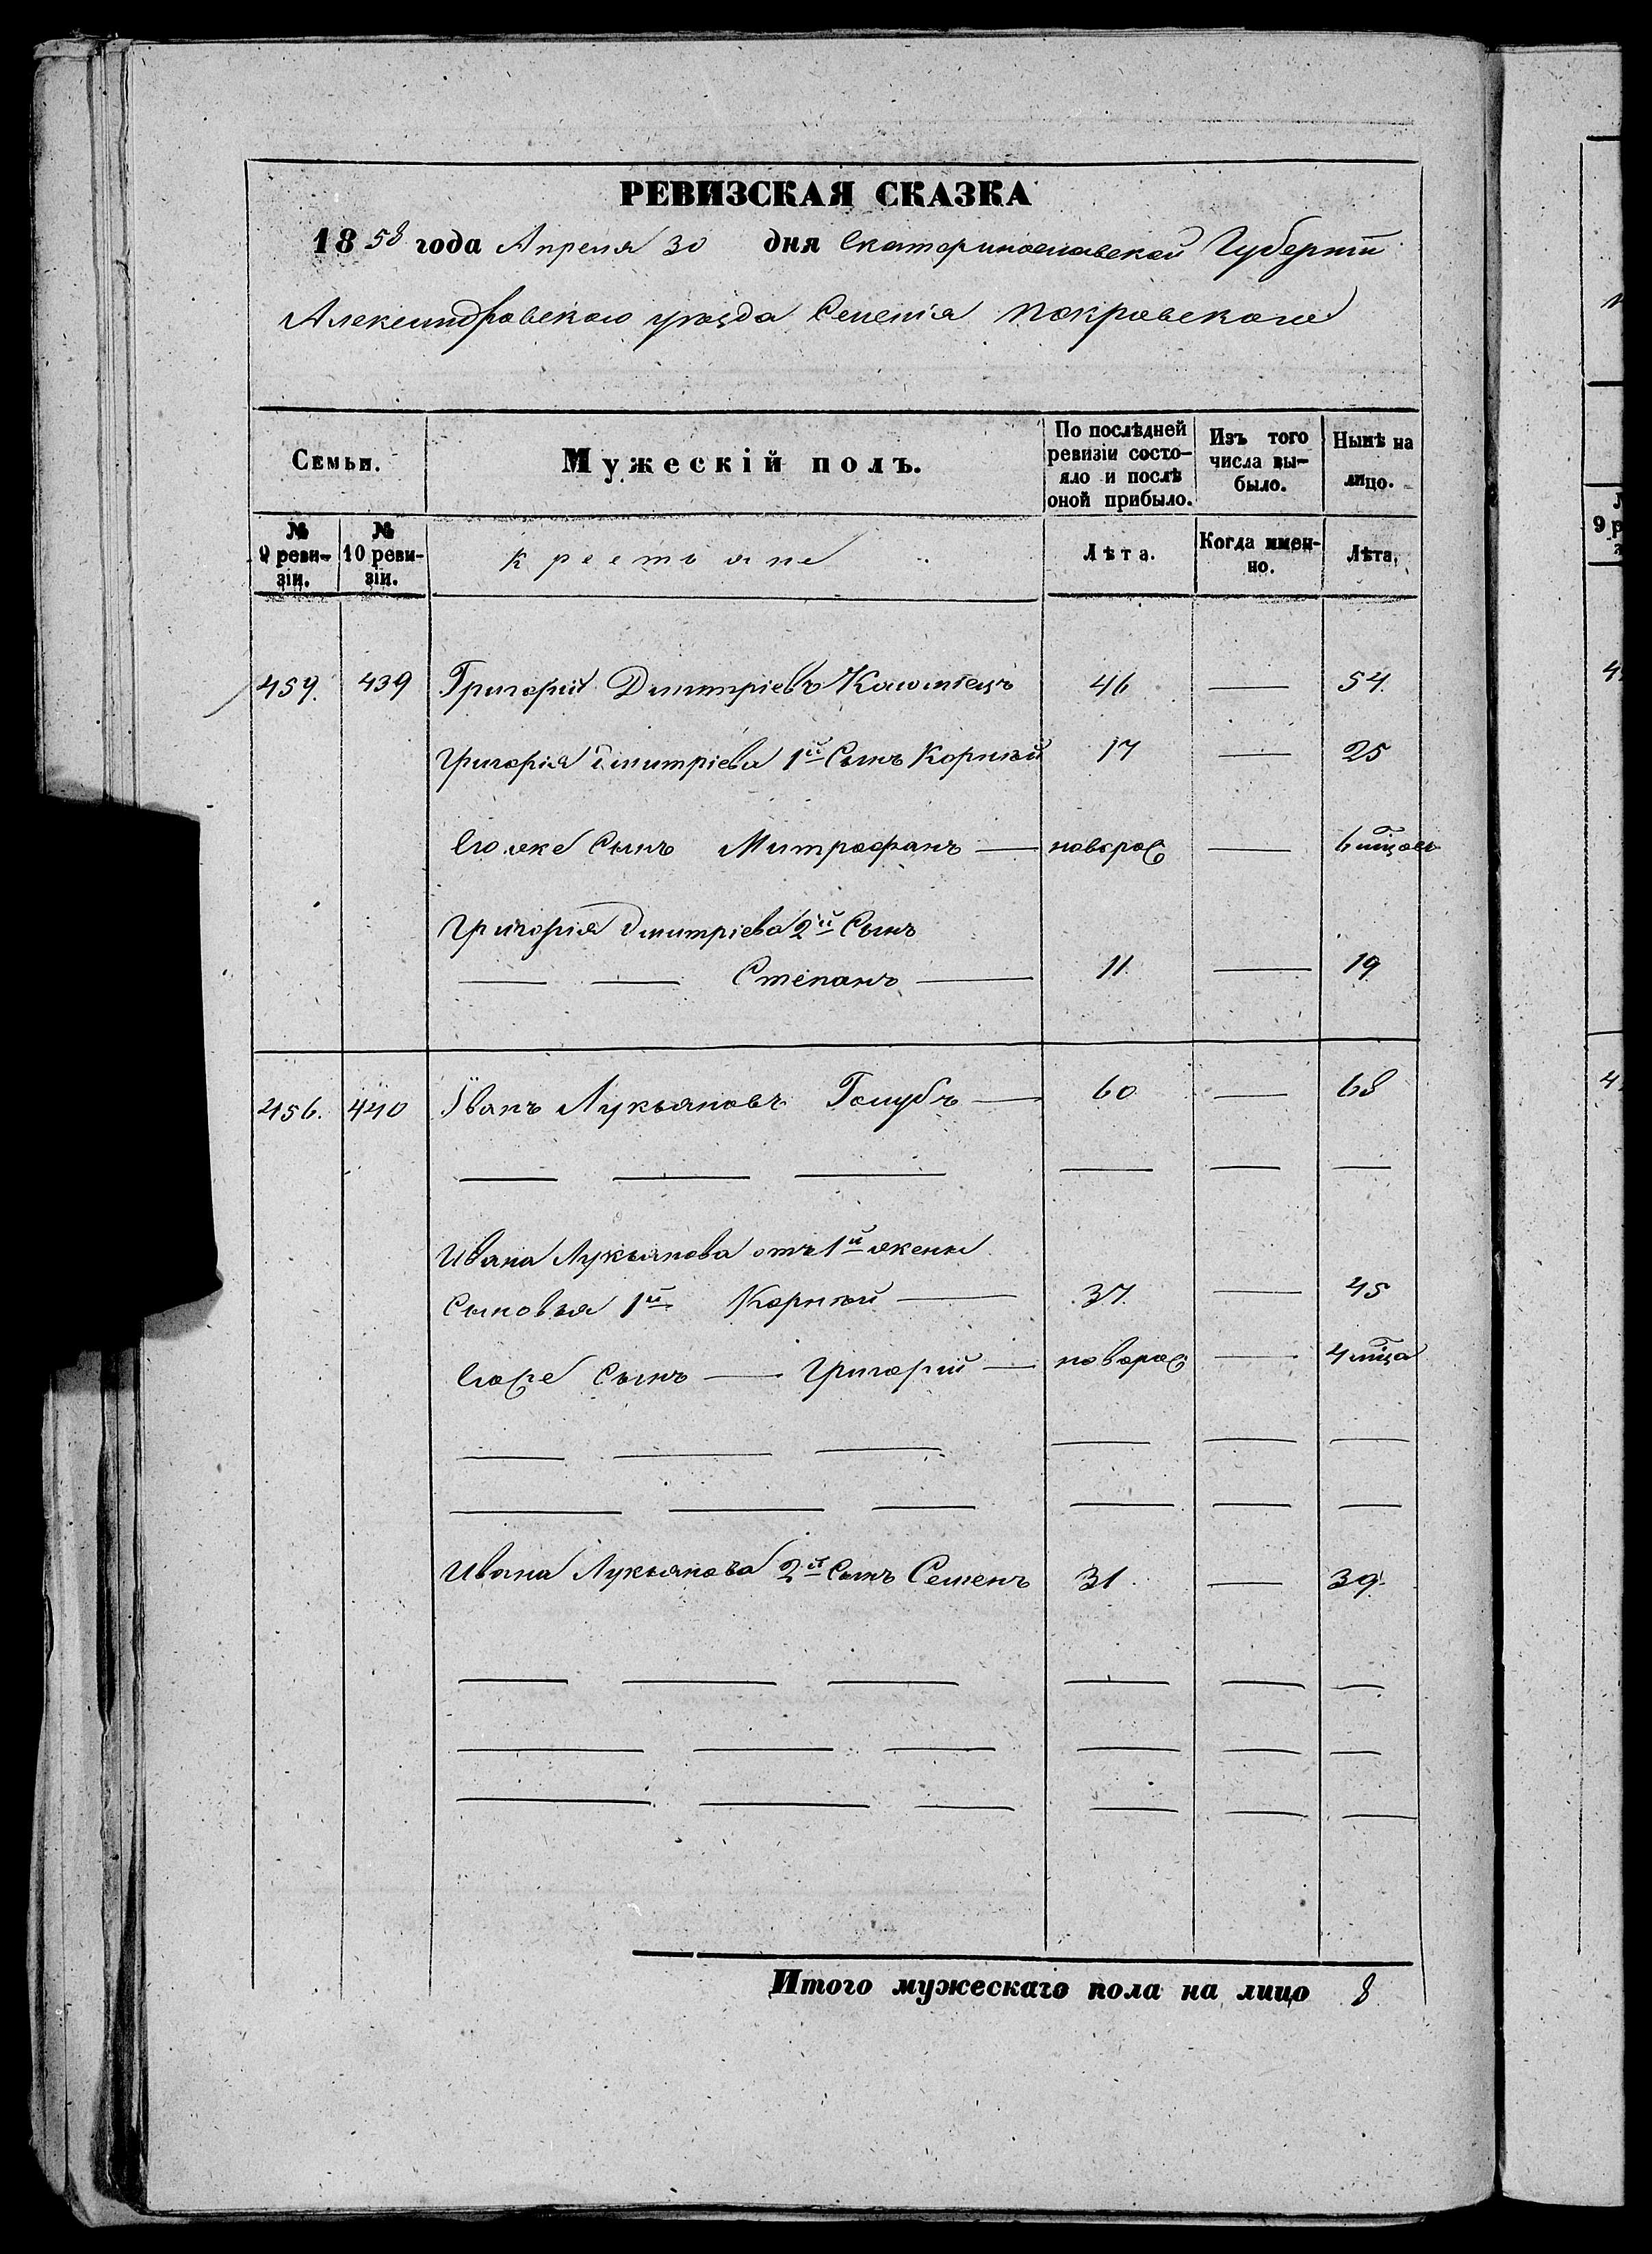 РЕВИЗСКАЯ СКАЗКА
1858 года Апреля 30 дня Екатеринославской Губерніи
Александровскаго уѣзда Селенія Покровскаго
Семьи.
Мужескій полъ.
По послѣдней ревизіи состо-
яло и послѣ оной прибыло.
Изъ того числа вы-
было.
Нынѣ на лицо.
№ 9 реви-
зіи.
№ 10 реви-
зіи.
крестьяне
Лѣта.
Когда имен-
но.
Лѣта.
459. 439 Григорій Дмитріевъ 46 — 54.
Григорія Дмитріева 1й Сынъ Корнѣй 17 — 25
Его же Сынъ Митрофанъ — новорож — 6 мцовъ
Григорія Дмитріева 2й Сынъ
— — Степанъ — 11. — 19
456. 440 Иванъ Лукьяновъ Голубъ — 60 — 68
— — — — — —
Ивана Лукьянова отъ 1й жены
Сыновья 1й Корнѣй — 37. — 45
Егоже Сынъ — Григорій — новорож — 4 мца
— — — — — —
— — — — — —
Ивана Лукьянова 2й Сынъ Семенъ 31. — 39.
— — — — — —
— — — — — —
— — — — — —
Итого мужескаго пола на лицо 8.
9 р